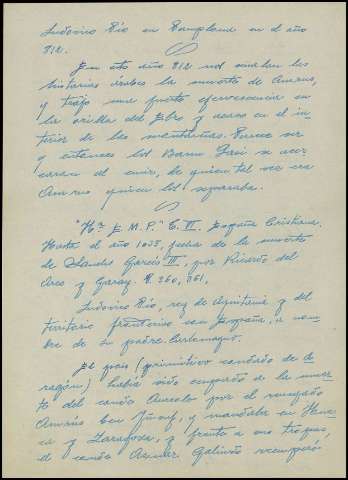 Ludovico Pío en Pamplona en el año
812.
En este año 812 nos señalan las
historias árabes la muerte de Amrus,
y trajo una fuerte efervescencia en
la orilla del Ebro y acaso en el in-
terior de las montañas. Parece ser
y entonces los Banu Qasi se acer-
caron al emir, de quien tal vez era
Amrus quien los separaba.
"Hª E M.P." t. VI. España Cristiana.
Hasta el año 1038, fecha de la muerte
de Sancho García III, por Ricardo del
Arco y Garay. P. 360, 361,
Ludovico Pío, rey de Aquitania y del
territorio fronterizo con España, a nom-
bre de su padre Carlomagno.
El país (primitivo condado de A-
ragón) había sido ocupado a la muer-
te del conde Aureolo por el renegado
Amrus ben Jusuf, y mandaba en Hues-
ca y Zaragoza, y frente a sus tropas,
el conde Aznar Galindo recuperó